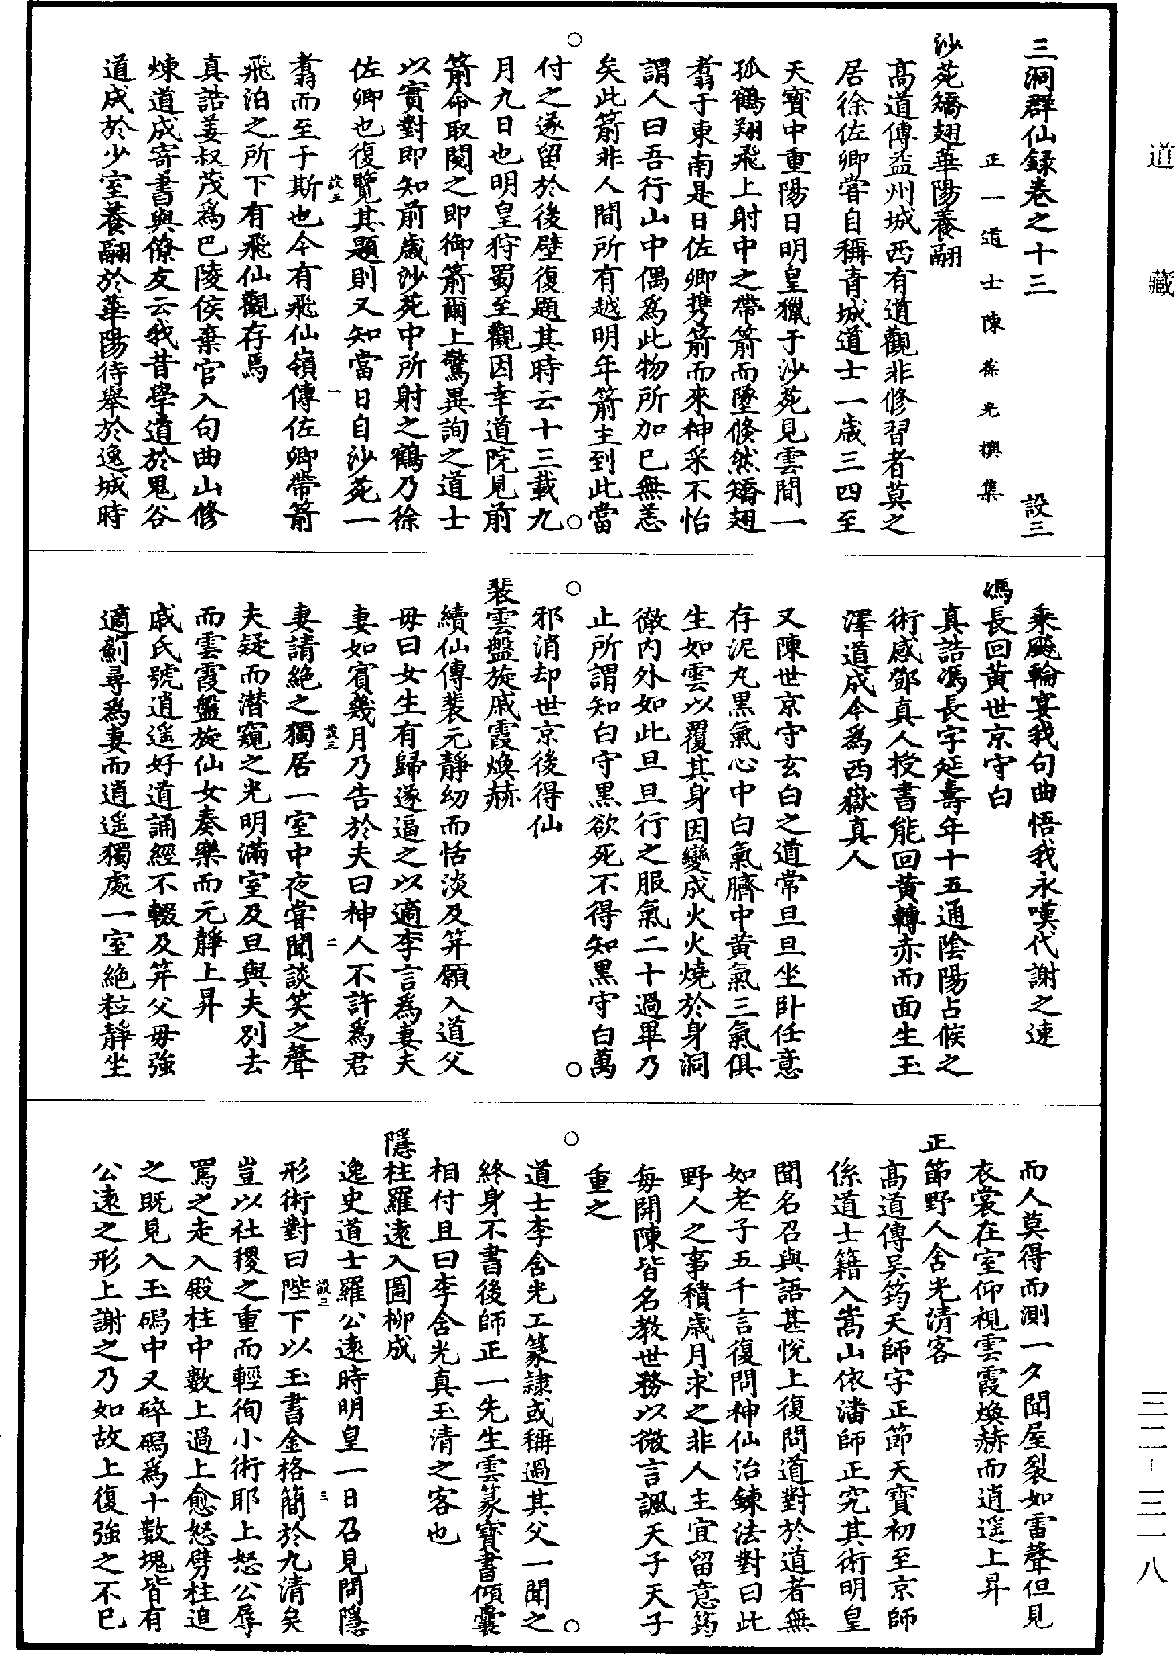 道藏
三洞群仙錄卷之十三　設三
正一道士陳葆光撰集
沙苑矯翅華陽養翮
高道傳益州城西有道觀非修習者莫之
居徐佐卿甞自稱青城道士一歲三四至
天寶中重陽日明皇獵于沙苑見雲間一
孤鶴翔飛上射中之帶箭而墜倏然矯翅
翥于東南是日佐卿携箭而來神采不怡
謂人曰吾行山中偶為此物所加已無恙
矣此箭非人間所有越明年箭主到此當
付之遂留於後壁復題其時云十三載九
月九日也明皇狩蜀至觀因幸道院見前
箭命取閱之即御箭爾上驚異詢之道士
以實對即知前歲沙苑中所射之鶴乃徐
佐卿也復覽其題則又知當日自沙苑一
翥而至于斯也今有飛仙嶺傳佐卿帶箭
設三　一
飛泊之所下有飛仙觀存焉
真誥姜叔茂為巴陵侯棄官入句曲山修
煉道成寄書與僚友云我昔學道於鬼谷
道成於少室養翮於華陽待舉於逸城時
乘飈輪宴我句曲悟我永嘆代謝之速
馮長回黃世京守白
真誥馮長字延壽年十五通陰陽占候之
術感鄧真人授書能回黃轉赤而面生玉
澤道成今為西嶽真人
又陳世京守玄白之道常旦旦坐卧任意
存泥丸黑氣心中白氣臍中黃氣三氣俱
生如雲以覆其身因變成火火燒於身洞
徹內外如此旦旦行之服氣二十過畢乃
止所謂知白守黑欲死不得知黑守白萬
邪消却世京後得仙
裴雲盤旋戚霞煥赫
續仙傳裴元靜幼而恬淡及笄願入道父
母曰女生有歸遂逼之以適李言為妻夫
妻如賓幾月乃告於夫曰神人不許為君
設三　二
妻請絕之獨居一室中夜甞聞談笑之聲
夫疑而潛窺之光明滿室及旦與夫別去
而雲霞盤旋仙女奏樂而元靜上昇
戚氏號逍遥好道誦經不輟及笄父母強
適蒯尋為妻而逍遥獨處一室絕粒靜坐
而人莫得而測一夕聞屋裂如雷聲但見
衣裳在室仰視雲霞煥赫而逍遥上昇
正節野人含光清客
高道傳吳筠天師字正節天寶初至京師
係道士籍入嵩山依潘師正究其術明皇
聞名召與語甚悅上復問道對於道者無
如老子五千言復問神仙治鍊法對曰此
野人之事積歲月求之非人主宜留意筠
每開陳皆名教世務以微言諷天子天子
重之
道士李含光工篆隷或稱過其父一聞之
終身不書後師正一先生雲篆寶書傾囊
相付且曰李含光真玉清之客也
隱柱羅遠入圖柳成
逸史道士羅公遠時明皇一日召見問隱
形術對曰陛下以玉書金格簡於九清矣
設三　三
豈以社稷之重而輕徇小術耶上怒公辱
罵之走入殿柱中數上過上愈怒劈柱追
之既見入玉磶中又碎磶為十數塊皆有
公遠之形上謝之乃如故上復強之不已
三二－三一八